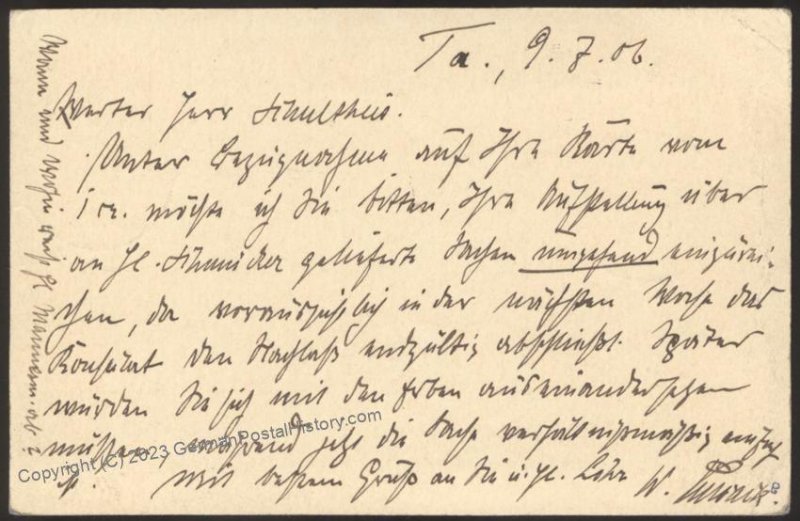 Ta., 9.7.06.
Werter Herr Schultheis.
Unter Bezugnahme auf Ihre Karte vom
1 cr. möchte ich Sie bitten, Ihre Aufstellung über
an H. Schmicker gelieferte Sachen umgehend einzurei-
chen, da voraussichtlich in der nächsten Woche das
Konsulat den Nachlaß endgültig abschließt. Später
würden Sie sich mit den Erben auseinandersetzen
müssen, während jetzt die Sache verhältnismäßig einfach
Mit bestem Gruß an Sie u. H.
W.
Wann und wohin reist H. Mannesm. ab?
Copyright (C) 2023 GermanPostalHistory.com